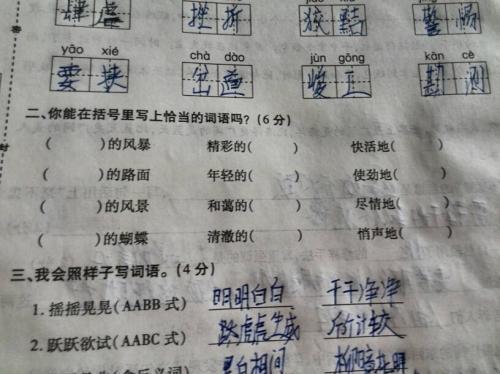 yāo xié chà dào jùn gōng kān cè
要挟 岔道 竣工 勘测
二、你能在括号里写上恰当的词语吗?(6分)
( )的风暴 精彩的( ) 快活地( )
( )的路面 年轻的( ) 使劲地( )
( )的风景 和蔼的( ) 尽情地( )
( )的蝴蝶 清澈的( ) 悄声地( )
三、我会照样子写词语。(4分)
1. 摇摇晃晃(AABB 式) 明明白白 干干净净
2. 跃跃欲试(AABC 式) 斤斤计较
黑白相间 柳暗花明